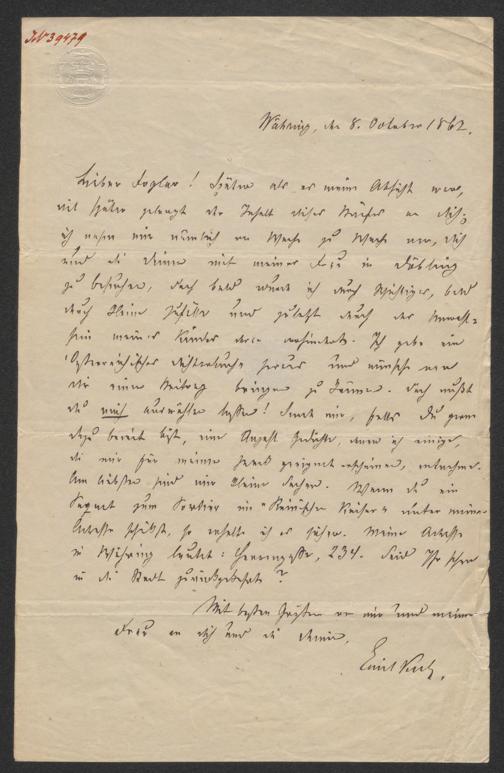 JN 39479
Währing, den 8. October 1862.
Lieber Foglar! Später als es meine Absicht war,
viel später gelangt der Inhalt dieses Briefes an dich;
ich nahm mir nämlich von Woche zu Woche vor, dich
und die Deinen mit meiner Frau in Döbling
zu besuchen, doch bald wurde ich durch Wichtiges, bald
durch kleine Zufälle und zuletzt durch das
meiner Kinder daran verhindert. Ich gebe ein
"Österreichisches Dichterbuch" heraus und wünsche von
dir einen Beitrag bringen zu können. Doch mußt
du mich auswählen lassen! Sende mir, falls du
dazu bereit bist, eine Anzahl Gedichte, denen ich einige,
die mir für meinen Zweck geeignet erscheinen, entnehme.
Am liebsten sind mir kleine Sachen. Wenn du ein
Paquet zum Portier im "Römischen Kaiser" unter meiner
Adresse schickst, so erhalte ich es sicher. Meine Adresse
in Währing lautet: Herrengasse, 234. Seid Ihr schon
in die Stadt zurückgekehrt?
Mit besten Grüßen von mir und meiner
Frau an dich und die Deinen,
Emil Kuh.